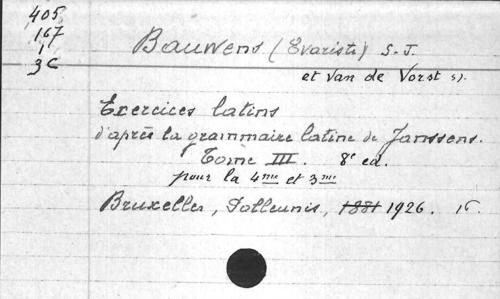 405
167
1
3C
Bauwens (Evariste) S.J.
et Van de Vorst SJ.
Exercices latins
d'après la grammaire latine de Janssens.
Tome III. 8e ed.
pour la 4me et 3me
Bruxelles, Polleunis, 1881 1926. 16.